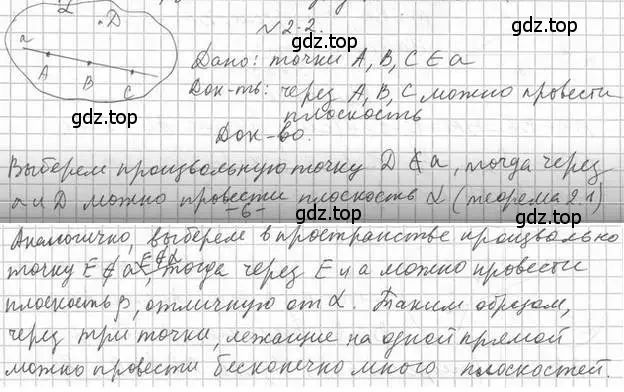 α
D
a
A
B
C
N 2.2.
Дано: точки A, B, C ∈ a
Док-ть: через A, B, C можно провести
плоскость
Док-во.
Выберем произвольную точку D ∉ a, тогда через
a и D можно провести плоскость α (теорема 2.1)
-6-
Аналогично, выберем в пространстве произвольно
точку E ∉ a, E ∉ α, тогда через E и a можно провести
плоскость β, отличную от α. Таким образом,
через три точки, лежащие на одной прямой
можно провести бесконечно много плоскостей.
gdz.top
gdz.top
gdz.top
gdz.top
gdz.top
gdz.top
gdz.top
gdz.top
gdz.top
gdz.top